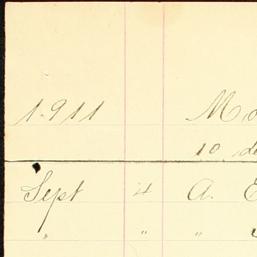 1911 Mo
10 de
Sept 4 A. E
" " "